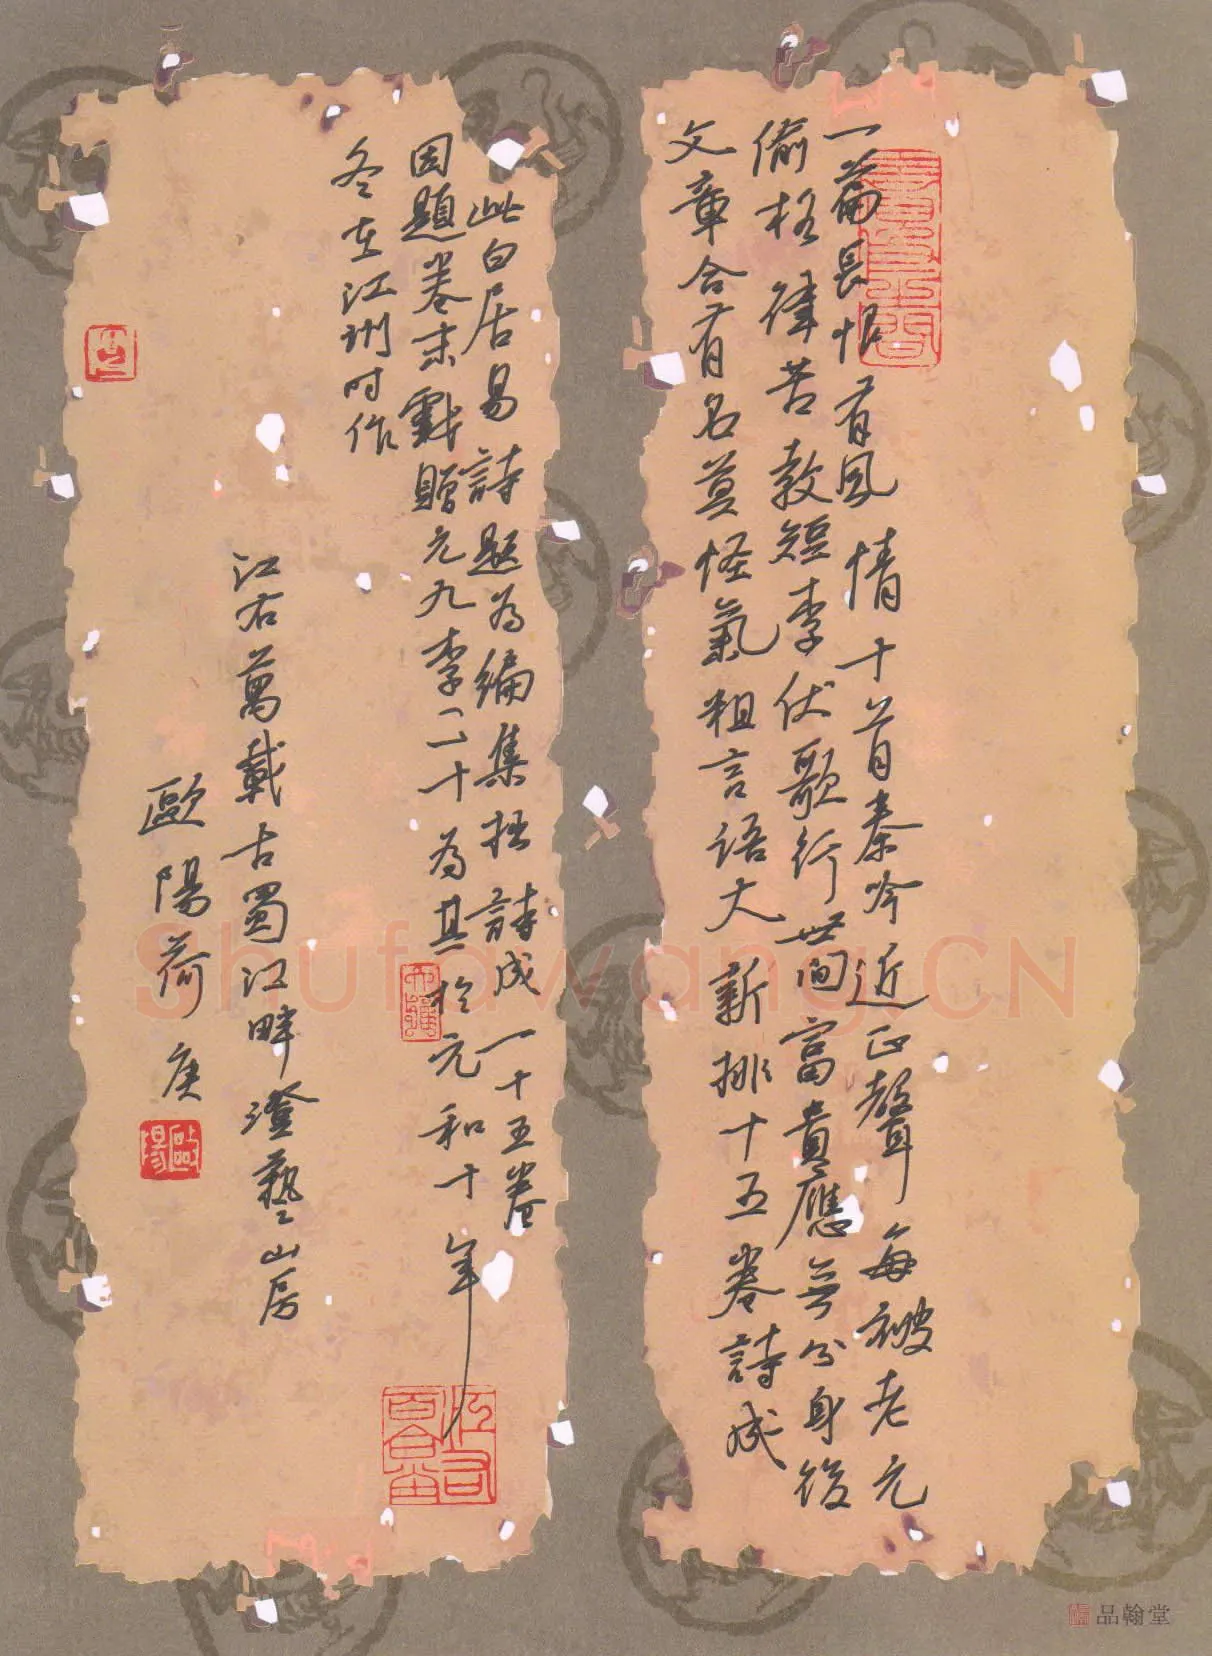 一篇長恨有風情十首秦吟近正聲每被老元
偷格律苦教短李伏歌行世间富貴應無分身後
文章合有名莫怪氣粗言语大新排十五卷詩成
此白居易詩題為编集拙詩成一十五卷
因題卷末戲贈元九李二十為其於元和十年
冬在江州时作
江右萬載古蜀江畔澄藝山房
歐陽荷庚
歐陽
Shufawang.CN
品翰堂